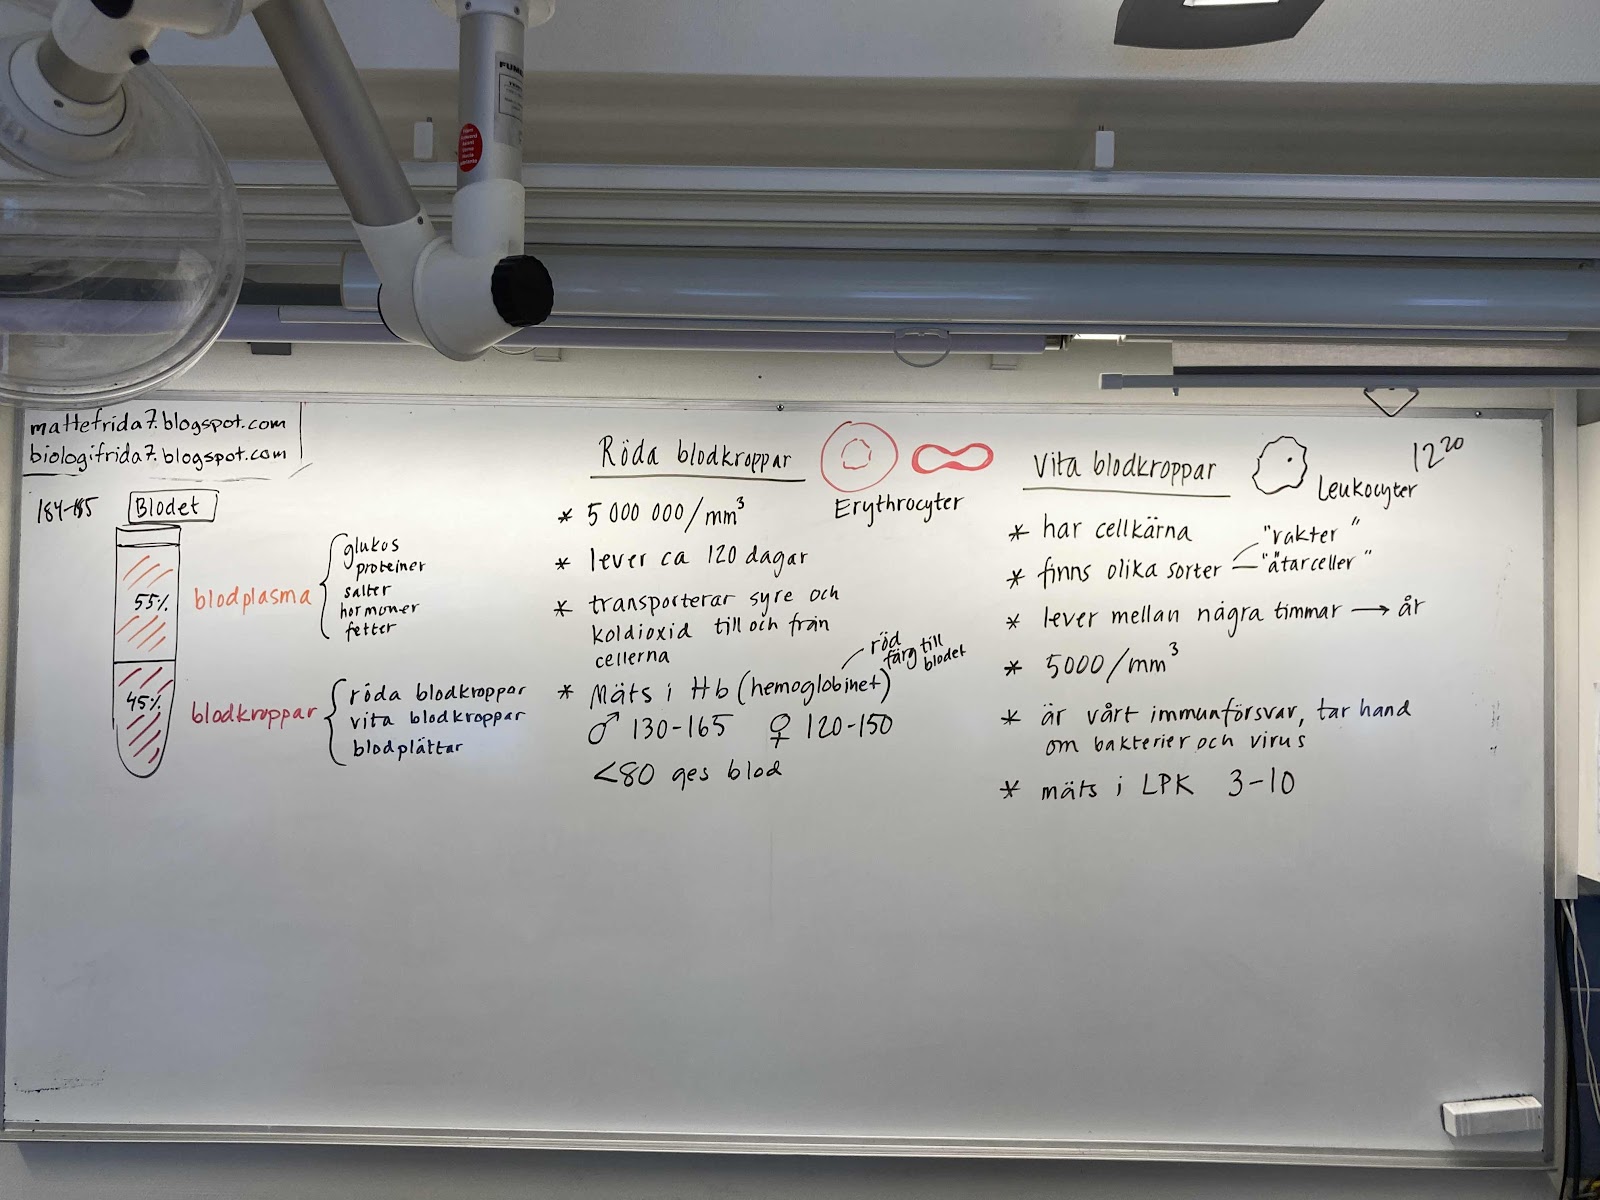 FUME
mattefrida7.blogspot.com
biologifrida7.blogspot.com
184-185
Blodet
55%
blodplasma
glukos
proteiner
salter
hormoner
fetter
45%
blodkroppar
röda blodkroppar
vita blodkroppar
blodplättar
Röda blodkroppar
Erythrocyter
* 5 000 000/mm³
* lever ca 120 dagar
* transporterar syre och
koldioxid till och från
cellerna
* Mäts i Hb (hemoglobinet)
röd
färg till
blodet
♂ 130-165 ♀ 120-150
<80 ges blod
Vita blodkroppar
Leukocyter
12²⁰
* har cellkärna
* finns olika sorter
"vakter"
"ätarceller"
* lever mellan några timmar → år
* 5000/mm³
* är vårt immunförsvar, tar hand
om bakterier och virus
* mäts i LPK 3-10